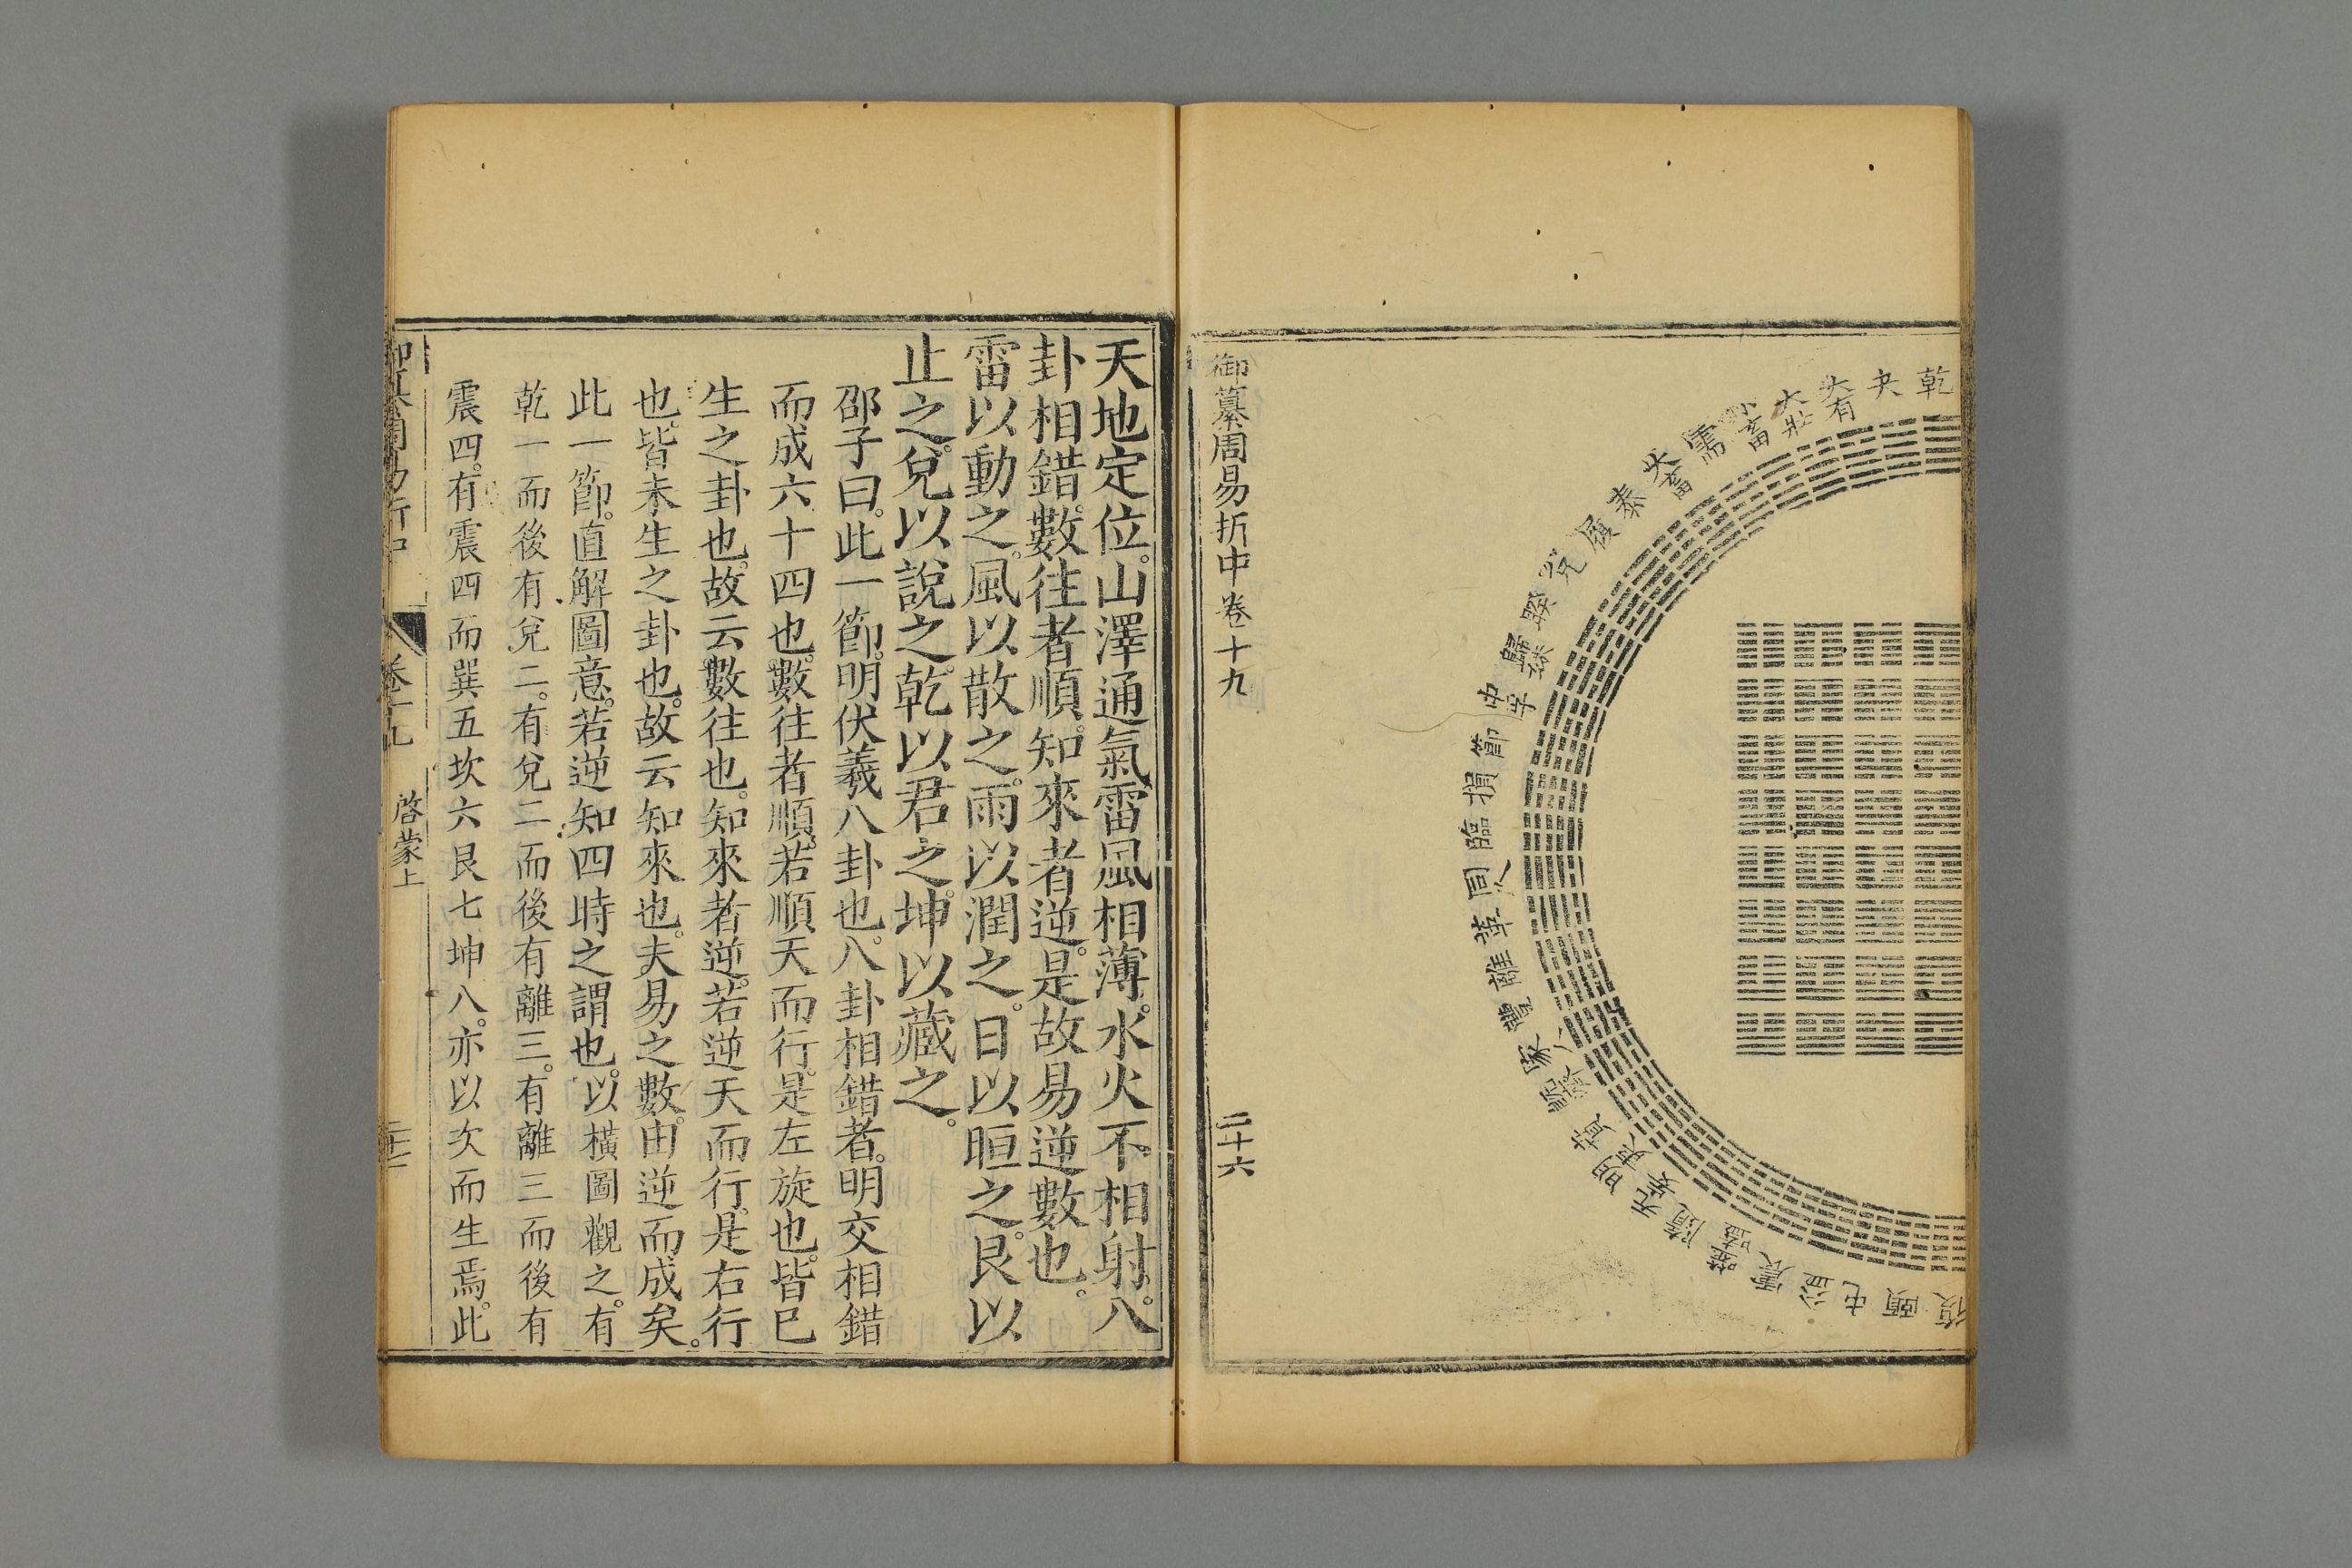 乾
夬
大有
大壯
小畜
需
大畜
泰
履
兌
睽
歸妹
中孚
節
損
臨
同人
革
離
豐
家人
旣濟
賁
明夷
无妄
隨
噬嗑
震
益
屯
頤
復
御纂周易折中 卷十九 二十六
天地定位。山澤通氣。雷風相薄。水火不相射。八
卦相錯。數往者順。知來者逆。是故易逆數也。
雷以動之。風以散之。雨以潤之。日以晅之。艮以
止之。兌以說之。乾以君之。坤以藏之。
邵子曰。此一節。明伏羲八卦也。八卦相錯者。明交相錯
而成六十四也。數往者順。若順天而行。是左旋也。皆已
生之卦也。故云數往也。知來者逆。若逆天而行。是右行
也。皆未生之卦也。故云知來也。夫易之數。由逆而成矣。
此一節。直解圖意。若逆知四時之謂也。以橫圖觀之。有
乾一而後有兌二。有兌二而後有離三。有離三而後有
震四。有震四而巽五坎六艮七坤八。亦以次而生焉。此
御纂周易折中 卷十九 啓蒙上